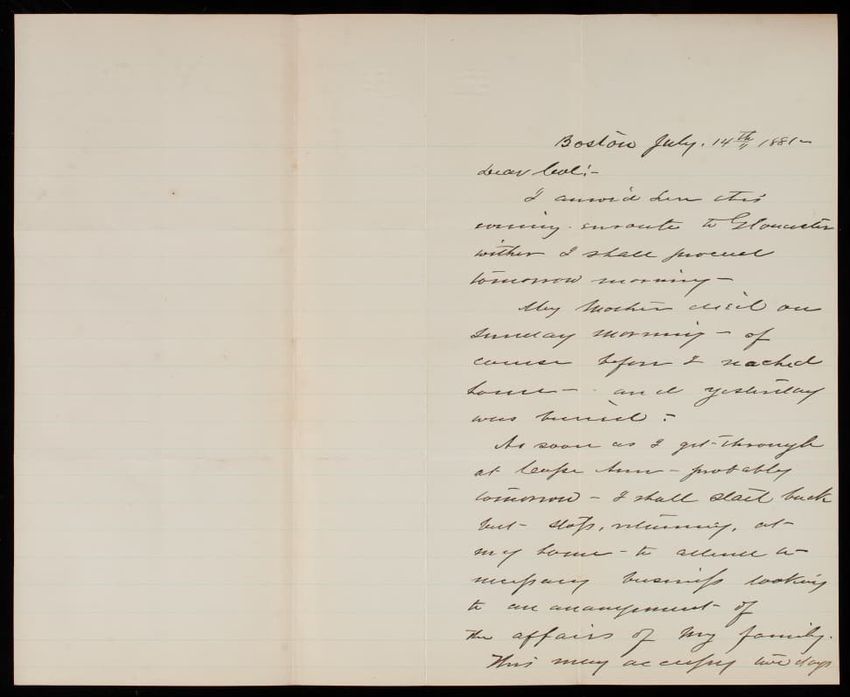 Boston July, 14th 1881-
Dear Col:-
I arriv'd here this
evening enroute to Gloucester
wither I shall proceed
tomorrow morning -
My Mother died on
Sunday morning - of
course before I reached
home - and yesterday
was buried.
As soon as I get through
at Cape Ann - probably
tomorrow - I shall start back
but stop, returning, at
my home - to attend to
necessary business looking
to an arrangement of
the affairs of my family.
This may occupy two days